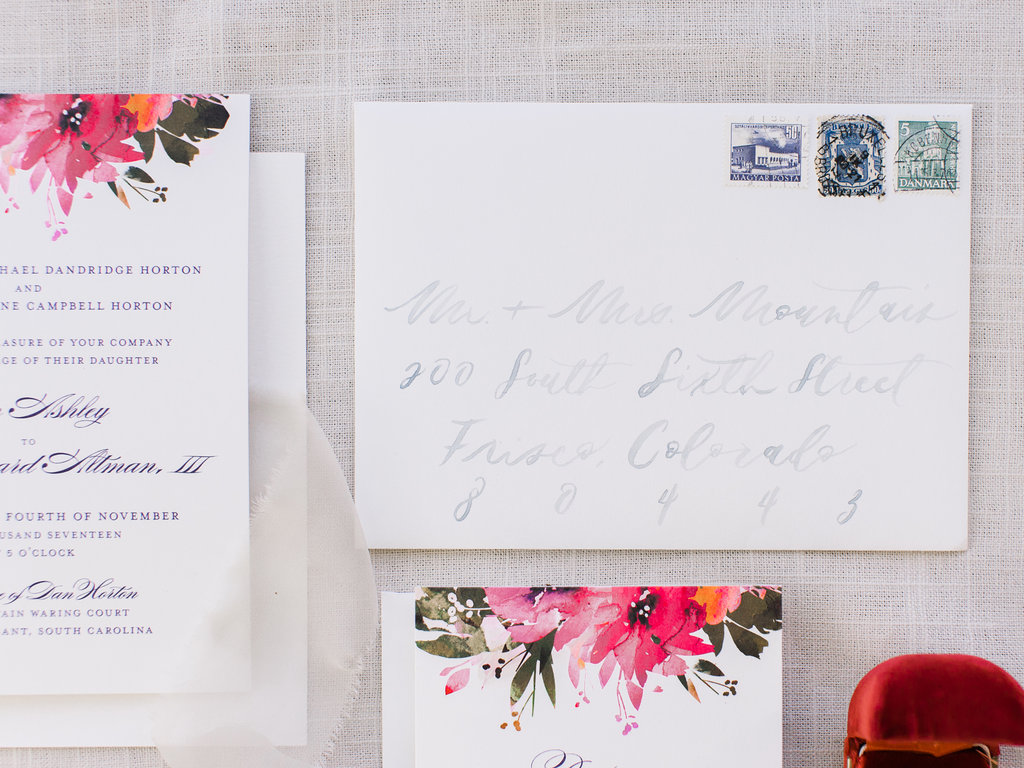 HAEL DANDRIDGE HORTON
AND
NE CAMPBELL HORTON
ASURE OF YOUR COMPANY
GE OF THEIR DAUGHTER
Ashley
TO
ard Altman, III
FOURTH OF NOVEMBER
USAND SEVENTEEN
5 O'CLOCK
of Dan Horton
AIN WARING COURT
ANT, SOUTH CAROLINA
MAGYAR POSTA
5
DANMARK
Mr. + Mrs. Mountain
200 South Sixth Street
Frisco, Colorado
80443